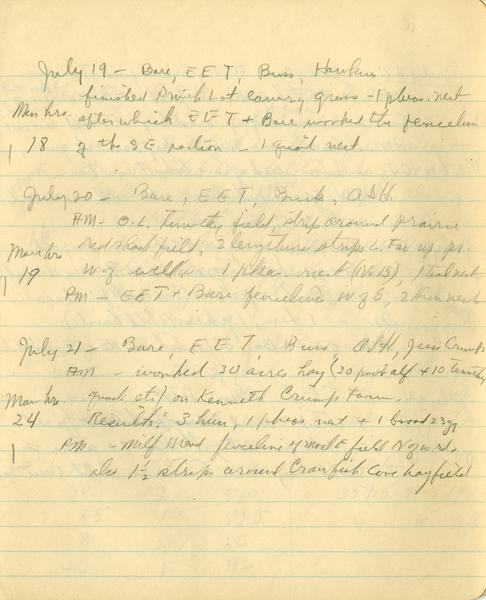 July 19 - Bare, E E T, Buss, Hawkins
finished Lot canary grass - 1 pheas. nest
Man hrs. after which EET + Bare worked the fenceline
18 of the SE section - 1 quail nest.
July 20 - Bare, EET, Buss, ASH
AM - O.L. timothy field, strip around prairie
field, 2 strips
Man hrs.
19 W of 1 pheas. nest (No 13), 1 teal nest
PM - EET + Bare fenceline W of 6, 2 Hun nests
July 21 - Bare, E E T, Buss, ASH, Jesse Crump
AM - worked 30 acres hay (20 poor alf + 10 timothy
Man hrs. quack etc) on Kenneth Crump farm.
24 Results: 3 hen, 1 pheas nest + 1 brood
PM - Milf Mead fenceline E field N of rd.
also 1½ strips around Crawfish Cove hayfield